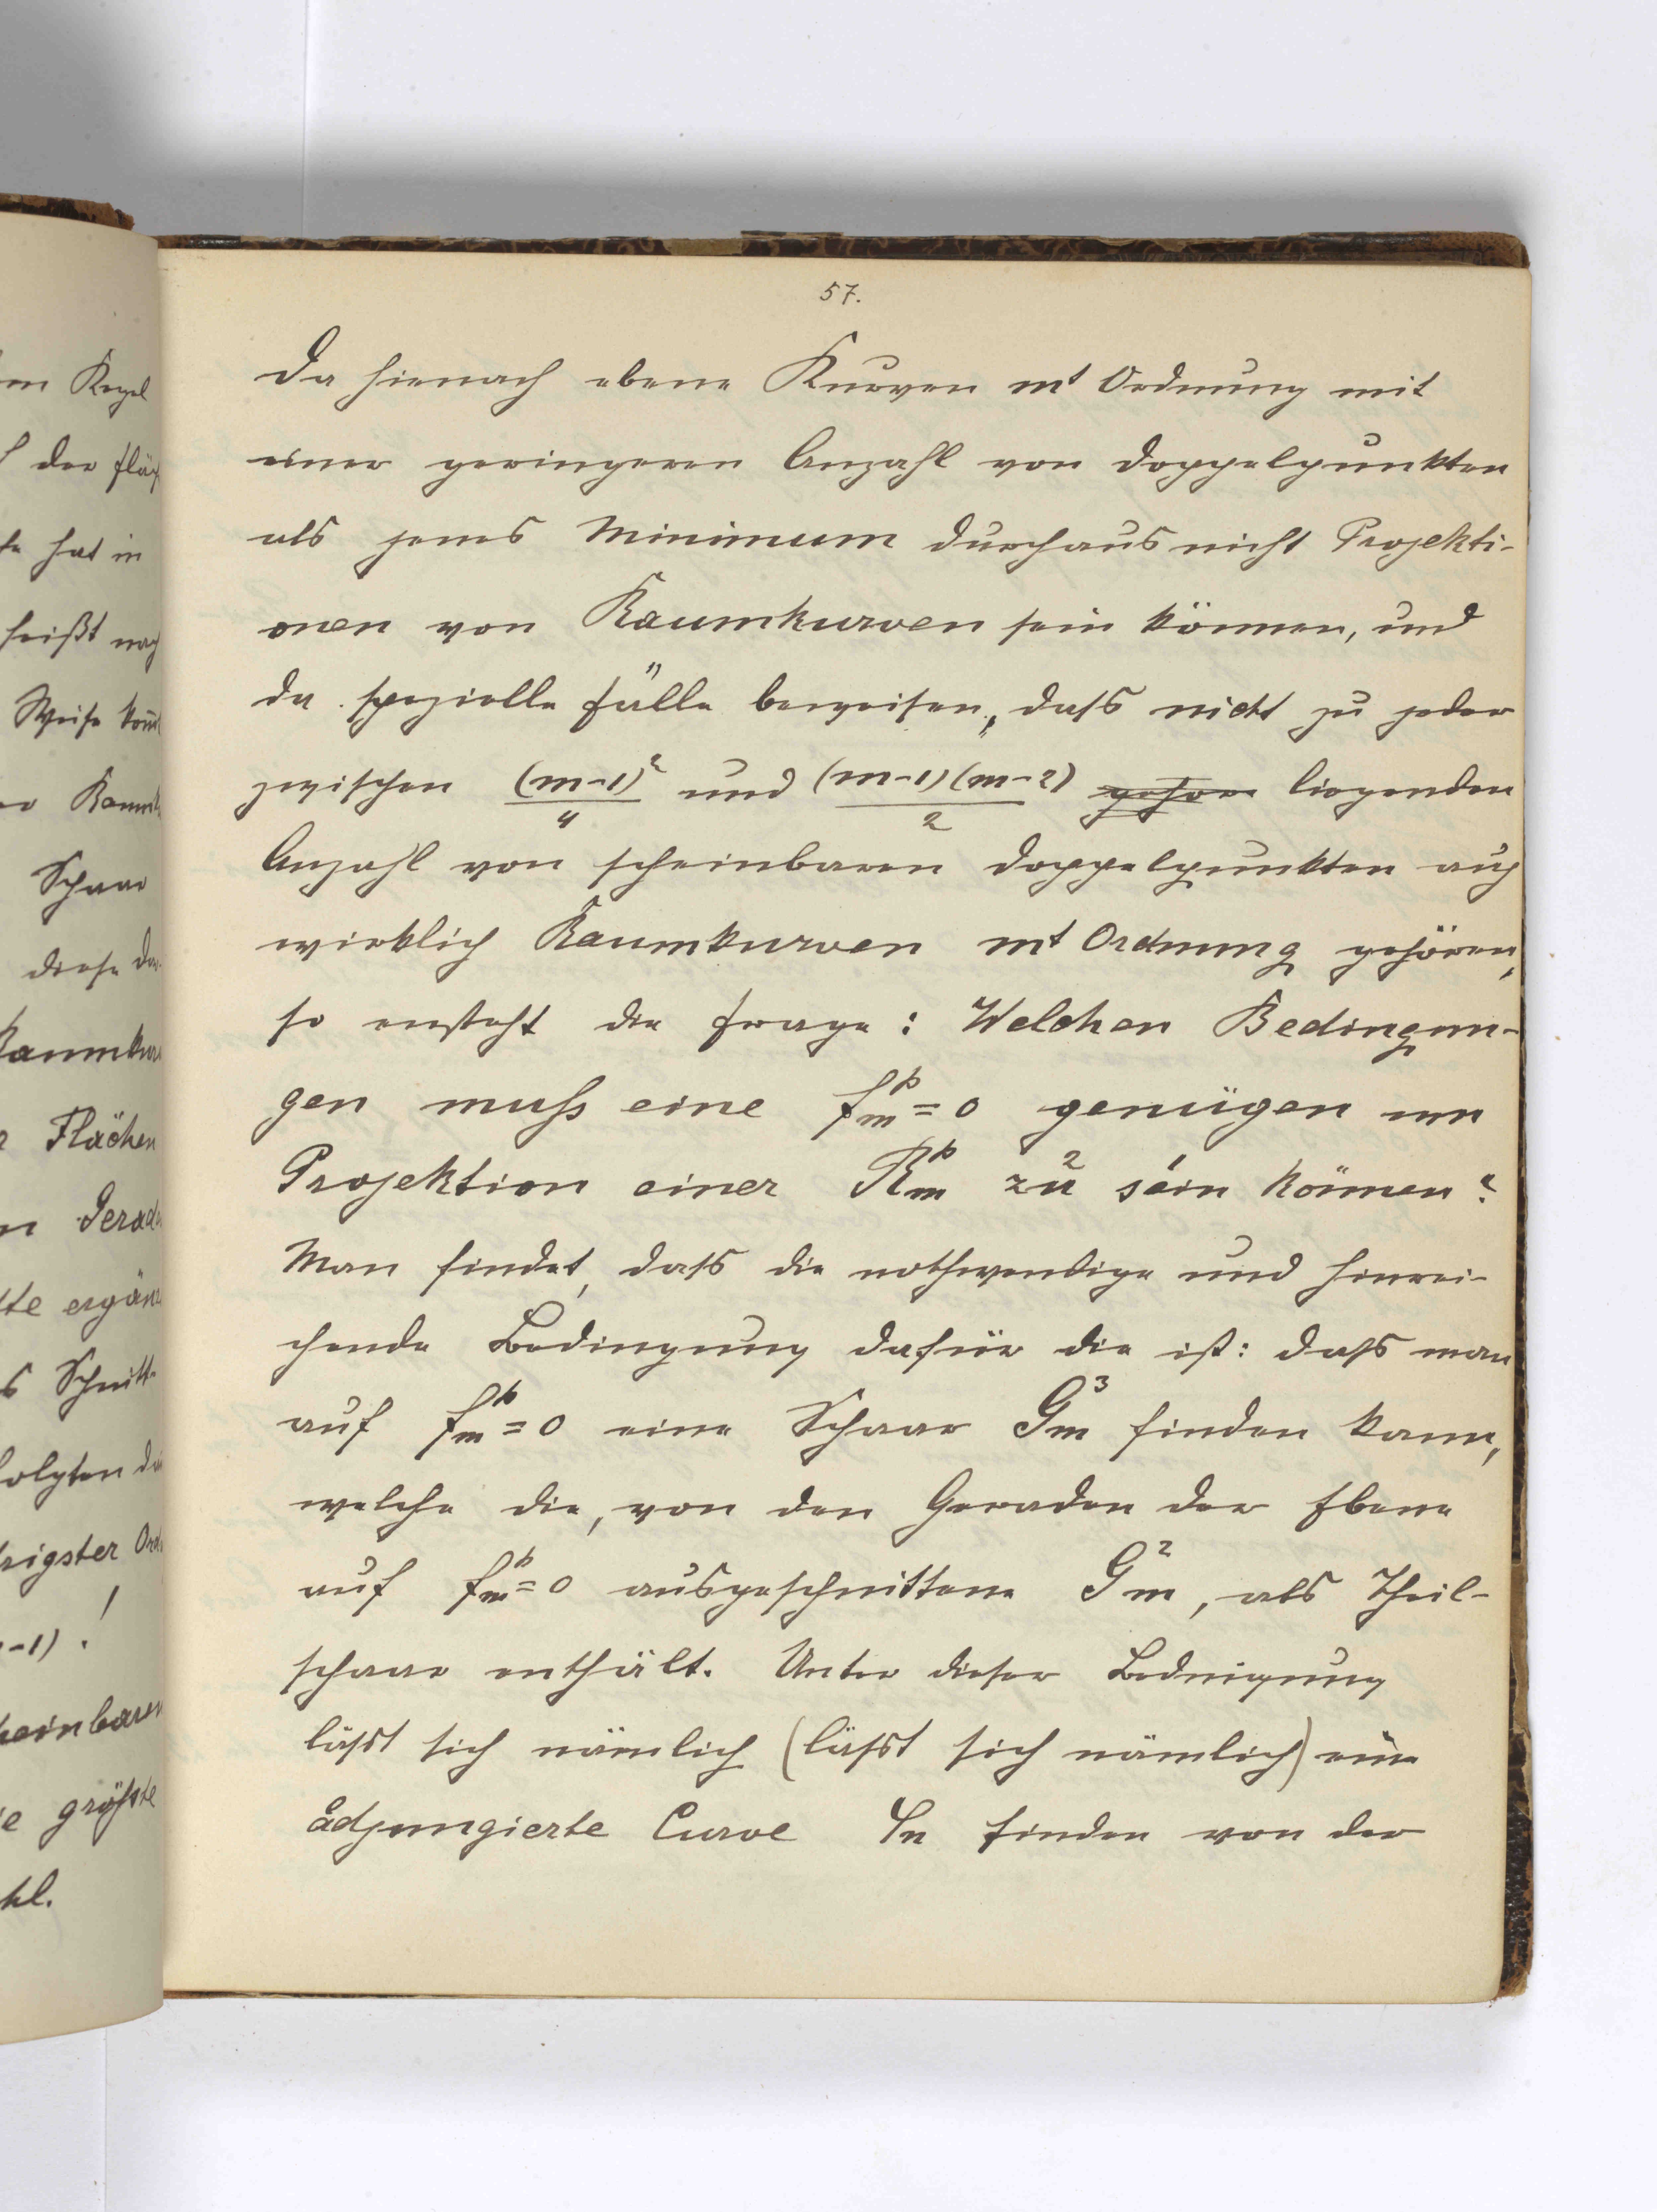 57.
Da hienach ebene Kurven mt Ordnung mit
einer geringeren Anzahl von Doppelpunkten
als jenes Minimum durchaus nicht Projekti-
onen von Raumkurven sein können, und
da spezielle Fälle beweisen, dass nicht zu jeder
zwischen (m-1)²/4 und (m-1)(m-2)/2 gehören liegenden
Anzahl von scheinbaren Doppelpunkten auch
wirklich Raumkurven mt Ordnung gehören,
so ensteht die Frage: Welchen Bedingun-
gen muss eine f_m^p = 0 genügen um
Projektion einer R_m^p zu² sein¹ können?
Man findet, dass die nothwendige und hinrei-
chende Bedingung dafür die ist: dass man
auf f_m^p = 0 eine Schaar G_m^3 finden kann,
welche die, von den Geraden der Ebene
auf f_m^p = 0 ausgeschnittene G_m^2, als Theil-
schaar enthält. Unter dieser Bedingung
lässt sich nämlich (lässt sich nämlich) eine
adjungierte Curve φn finden von der
en Kegel
der Fläch
hat in
heißt nach
Weise kom̄t
Schaar
diese
Raumkur
Flächen
n Gerad
te ergän
s Schnitt-
folgten
rigster Ord
-1)!
heinbaren
e größte
hl.